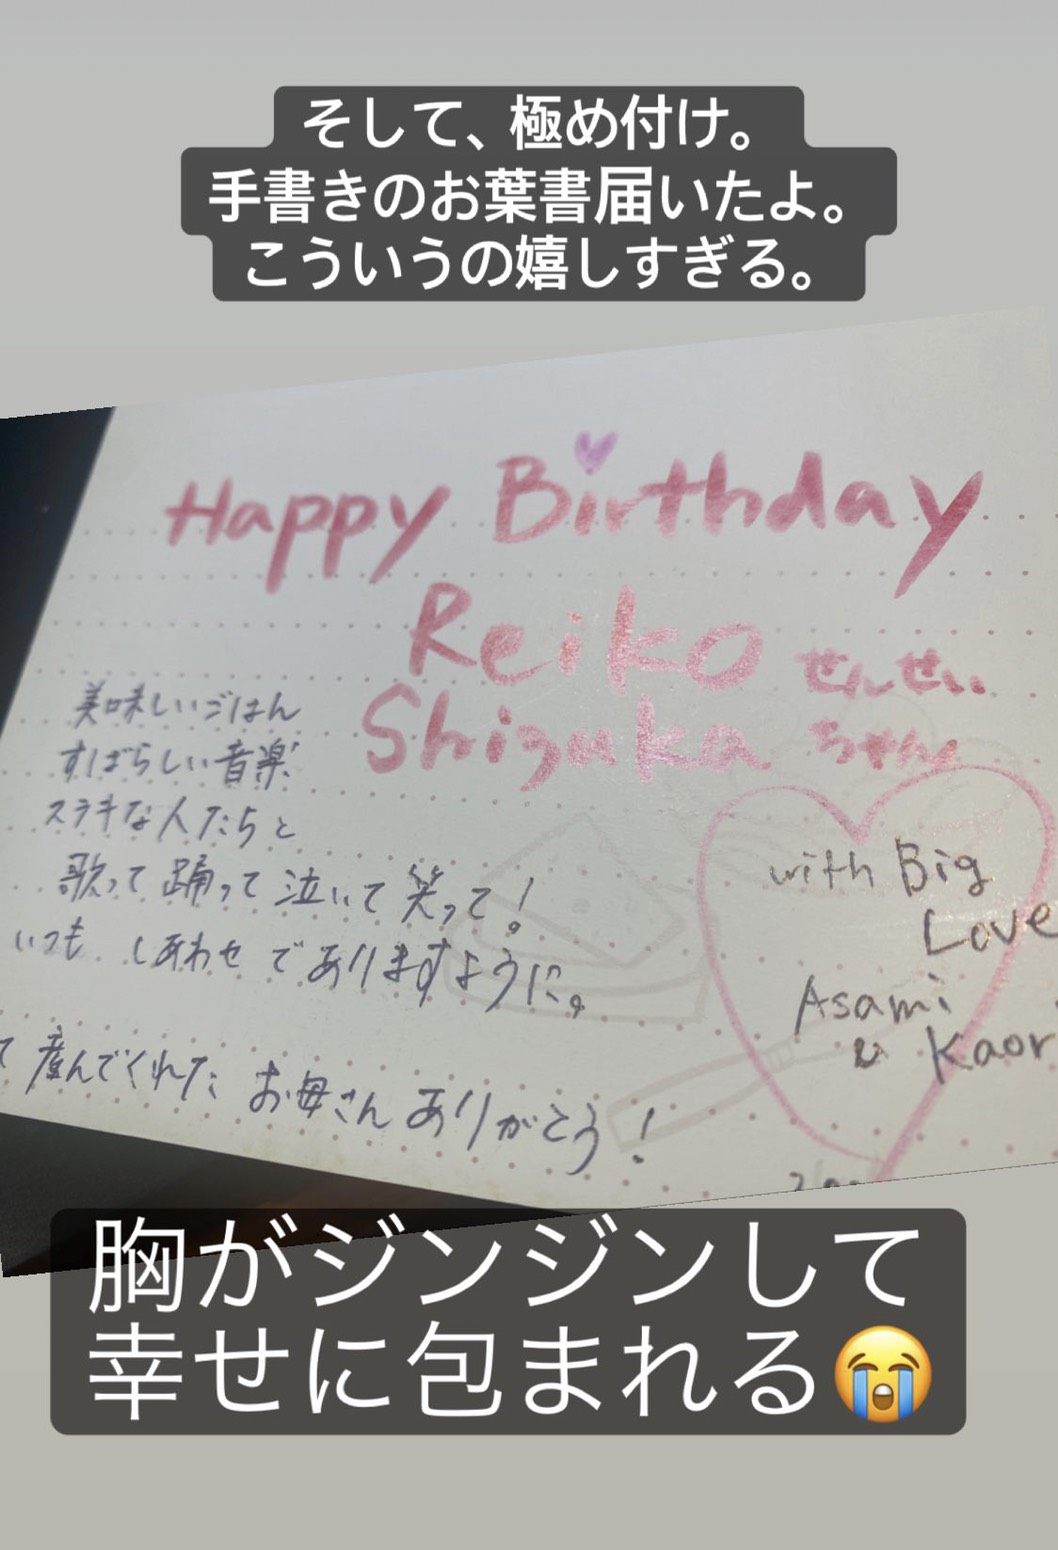 そして、極め付け。
手書きのお葉書届いたよ。
こういうの嬉しすぎる。
Happy Birthday
Reiko せんせい
Shizuka ちゃん
美味しいごはん
すばらしい音楽
ステキな人たちと
歌って踊って泣いて笑って!
いつも しあわせ でありますように。
て 産んでくれた お母さん ありがとう!
with Big
Love
Asami
& Kaor
胸がジンジンして
幸せに包まれる😭